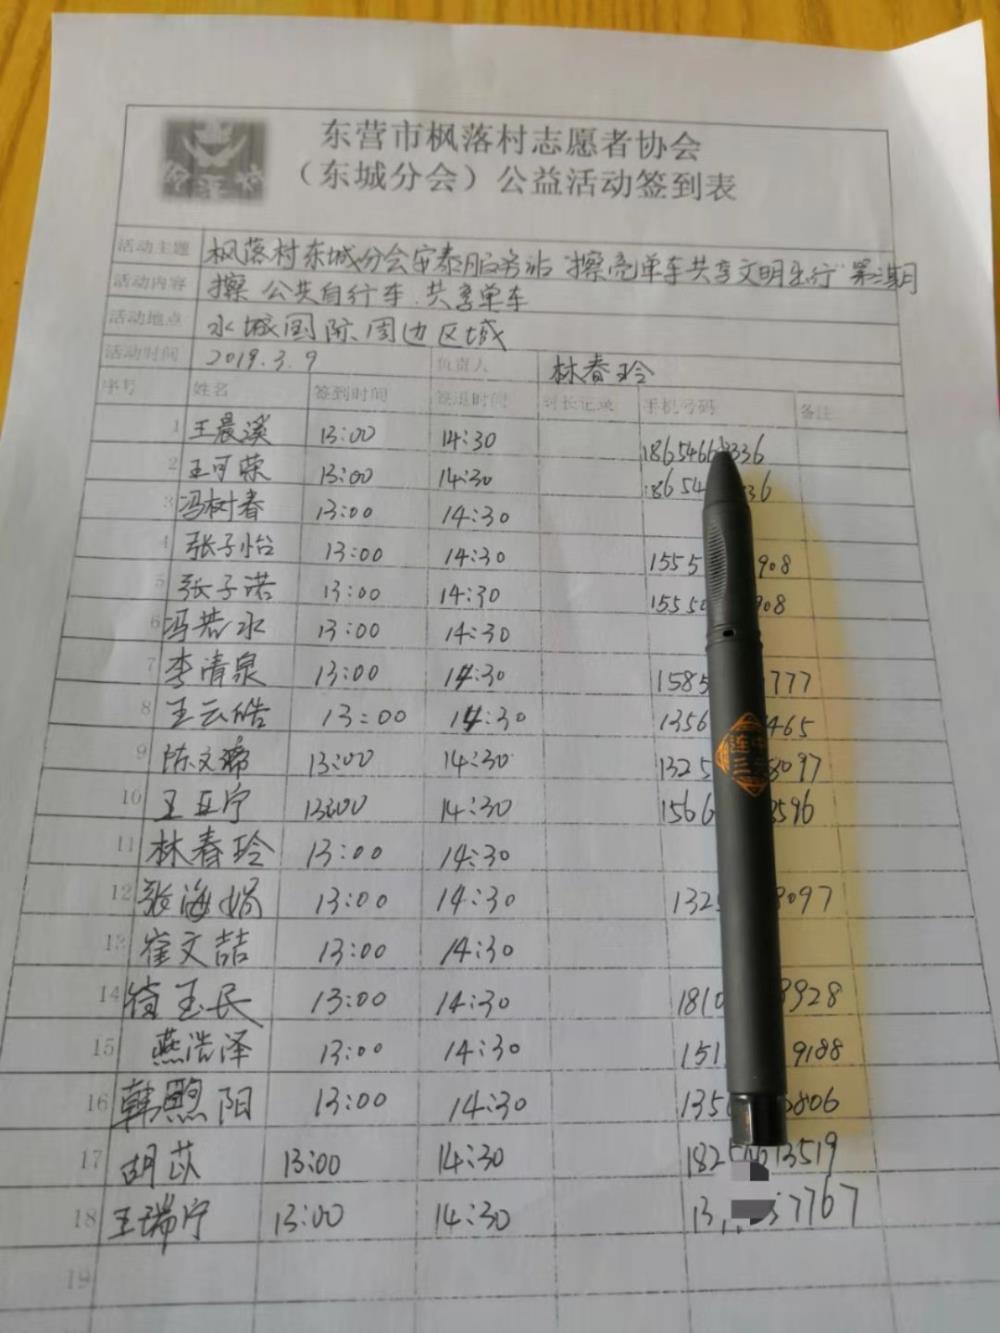 东营市枫落村志愿者协会
（东城分会）公益活动签到表
活动主题 枫落村东城分会安泰服务站“擦亮单车共享文明出行”第三期
活动内容 擦 公共自行车、共享单车
活动地点 水城国际周边区域
活动时间 2019.3.9 负责人 林春玲
序号 姓名 签到时间 签退时间 时长记录 手机号码 备注
1 王晨溪 13:00 14:30
2 王可荣 13:00 14:30
3 冯树春 13:00 14:30
4 张子怡 13:00 14:30 1555 908
5 张子诺 13:00 14:30 1550 908
6 冯若水 13:00 14:30
7 李清泉 13:00 14:30 1585 777
8 王云皓 13:00 14:30 1356 465
9 陈文 13:00 14:30 1325 8097
10 王亚宁 13:00 14:30 1566 8596
11 林春玲 13:00 14:30
12 张海娟 13:00 14:30 132 8097
13 崔文喆 13:00 14:30
14 玉民 13:00 14:30 1810 8928
15 燕浩泽 13:00 14:30 151 9188
16 韩煦阳 13:00 14:30 135 6806
17 胡苡 13:00 14:30 182 13519
18 王瑞宁 13:00 14:30 13 7767
19
连中
三